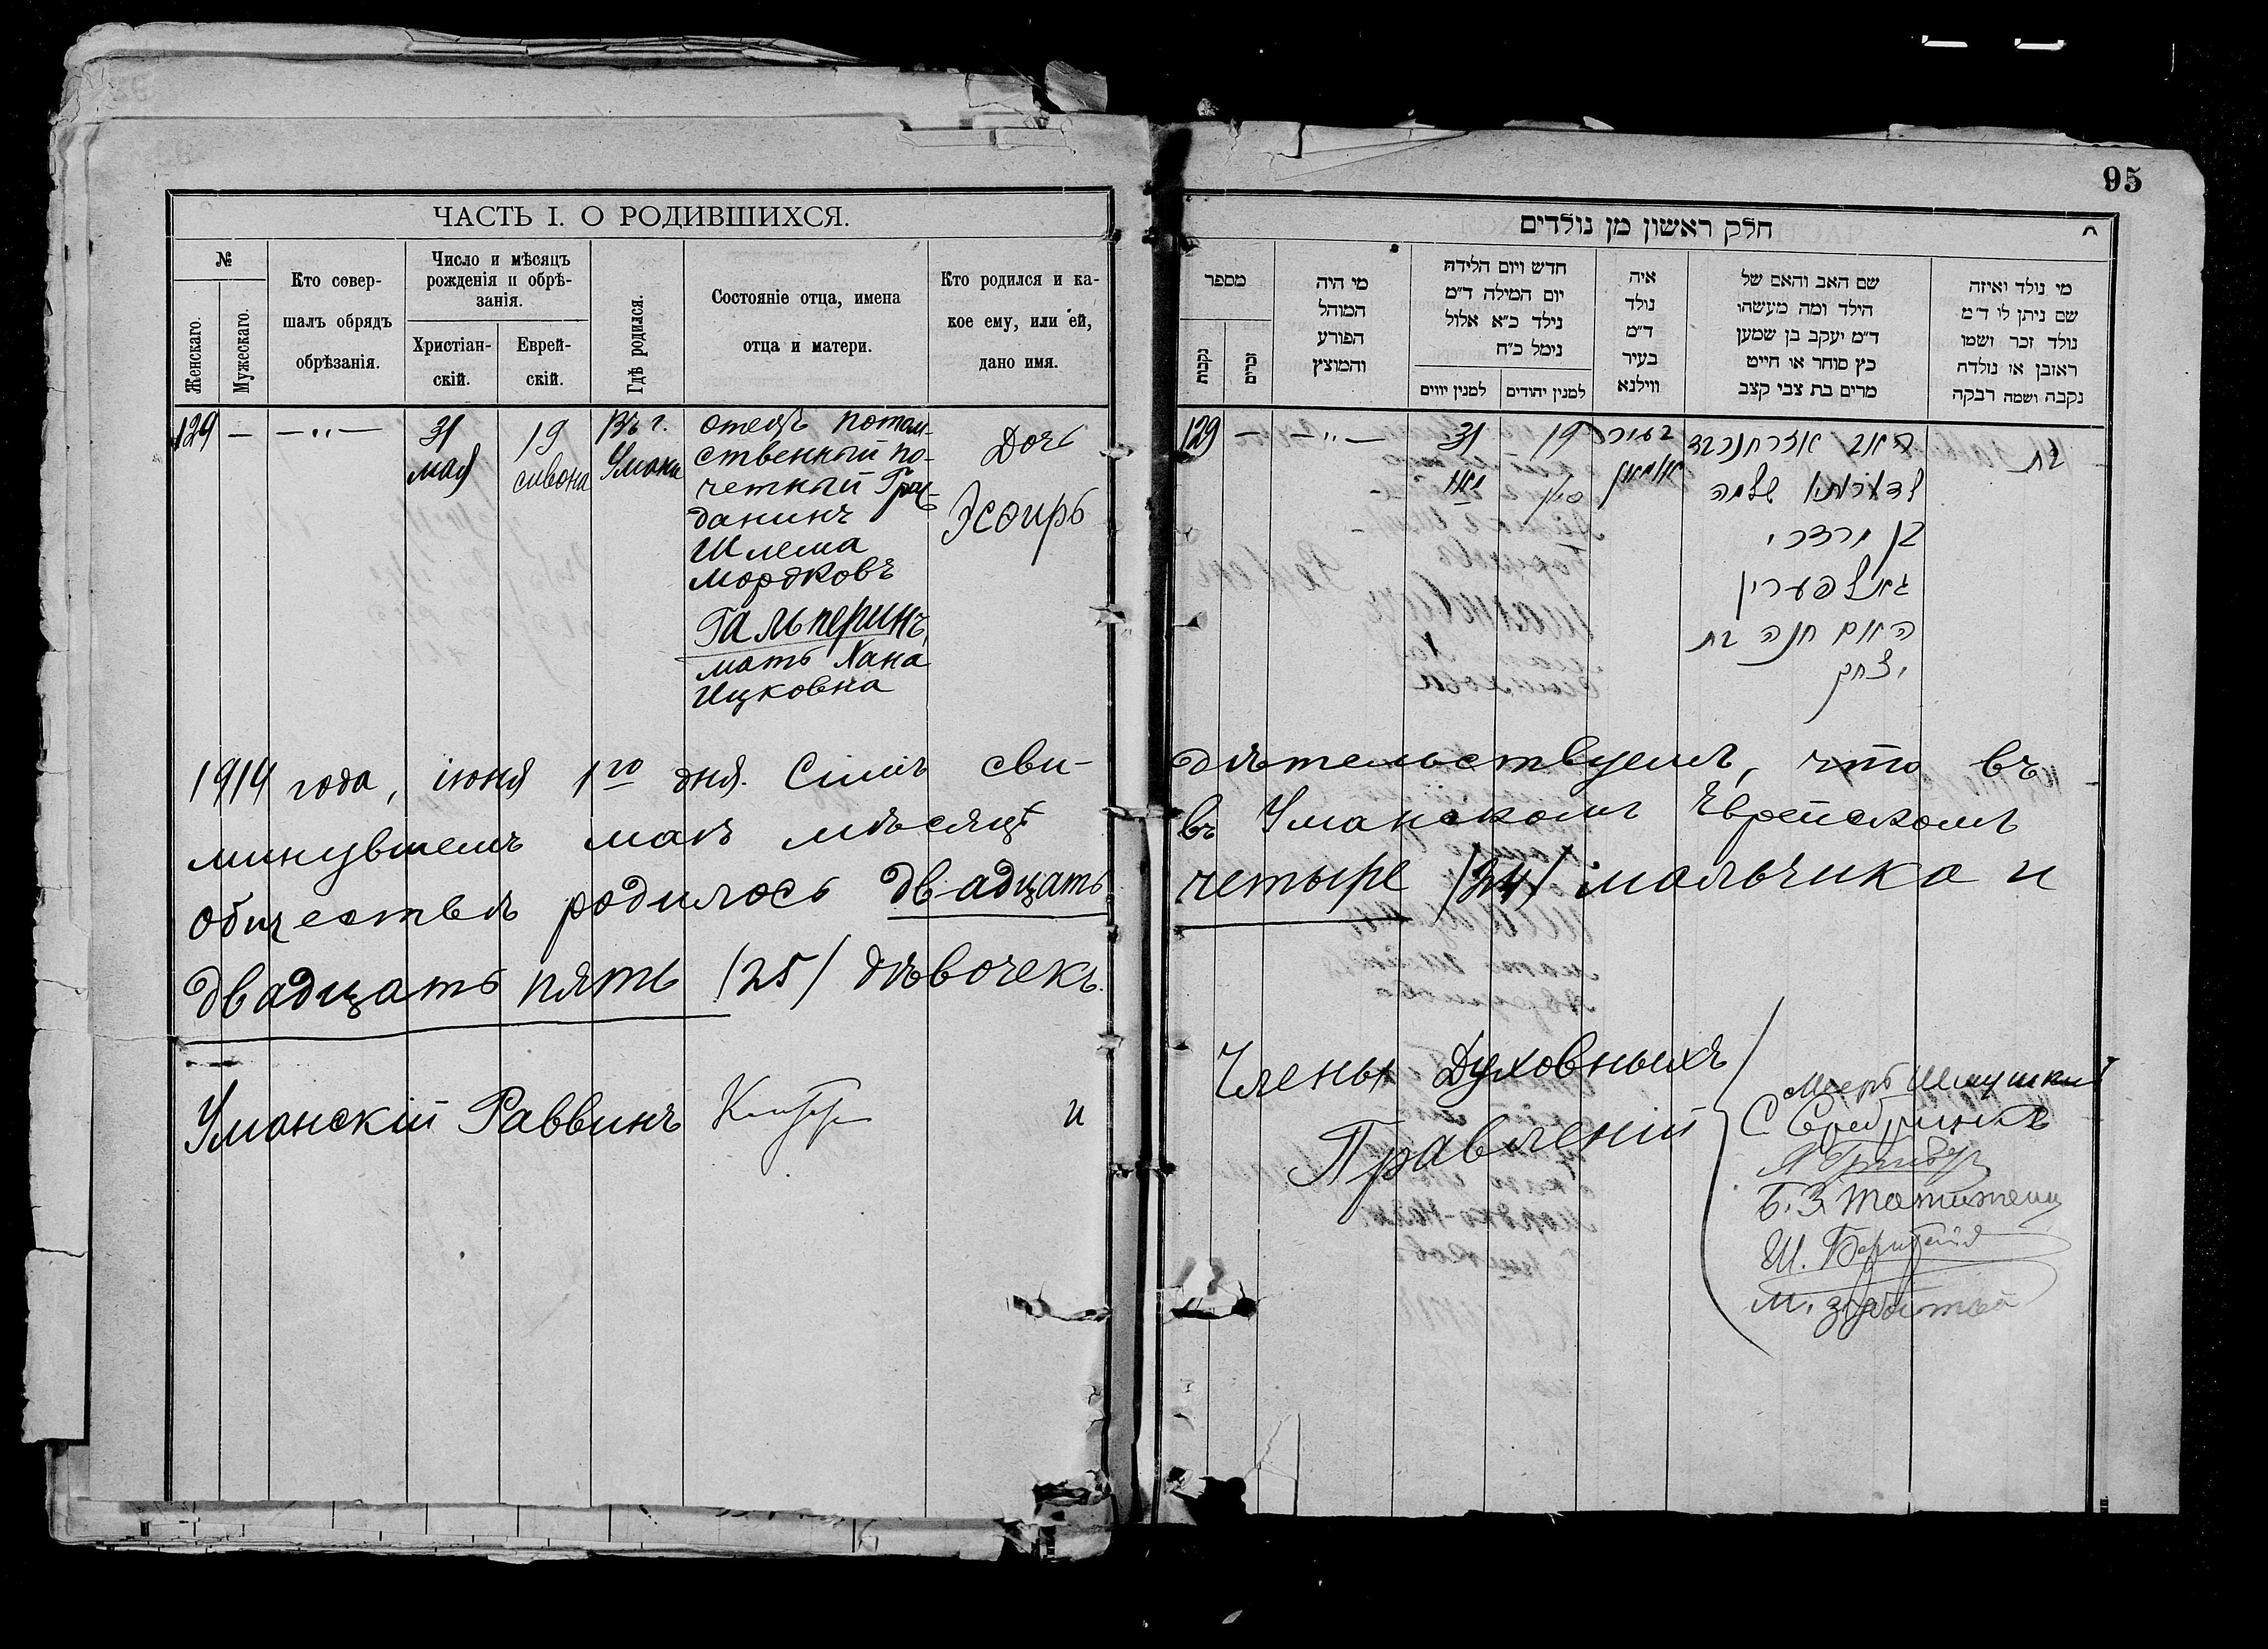 95
ЧАСТЬ I. О РОДИВШИХСЯ.
№
Женскаго.
Мужескаго.
Кто совер-
шалъ обрядъ
обрѣзанія.
Число и мѣсяцъ
рожденія и обрѣ-
занія.
Христіан-
скій.
Еврей-
скій.
Гдѣ родился.
Состояніе отца, имена
отца и матери.
Кто родился и ка-
кое ему, или ей,
дано имя.
129 — — „ —
31
мая
19
сивона
Въ г.
Умани
отецъ потом-
ственный по-
четный Граж-
данинъ
Шлема
Мордковъ
Гальперинъ,
мать Хана
Ицковна
Дочь
Эсѳирь
חלק ראשון מן נולדים
מספר
נקבות
זכרים
מי היה
המוהל
הפורע
והמוצץ
חדש ויום הלידה
יום המילה ד״מ
נילד כ״א אלול
נימל כ״ח
למנין יווים
למנין יהודים
איה
נולד
ד״מ
בעיר
ווילנא
שם האב והאם של
הילד ומה מעשהו
ד״מ יעקב בן שמען
כץ סוחר או חייט
מרים בת צבי קצב
מי נולד ואיזה
שם ניתן לו ד״מ
נולד זכר ושמו
ראובן או נולדה
נקבה ושמה רבקה
129 — — „ —
31
מאי
19
סיון
בעיר
אומאן
האב
שלמה
בן מרדכי
גאלפערין
האם חנה בת
יצחק
בת
1914 года, іюня 1го дня. Симъ сви-
дѣтельствуемъ, что въ
минувшемъ маѣ мѣсяцѣ
въ Уманскомъ Еврейскомъ
обществѣ родилось двадцать
четыре /24/ мальчика и
двадцать пять /25/ дѣвочекъ.
Уманскій Раввинъ
и
Члены Духовныхъ
Правленій